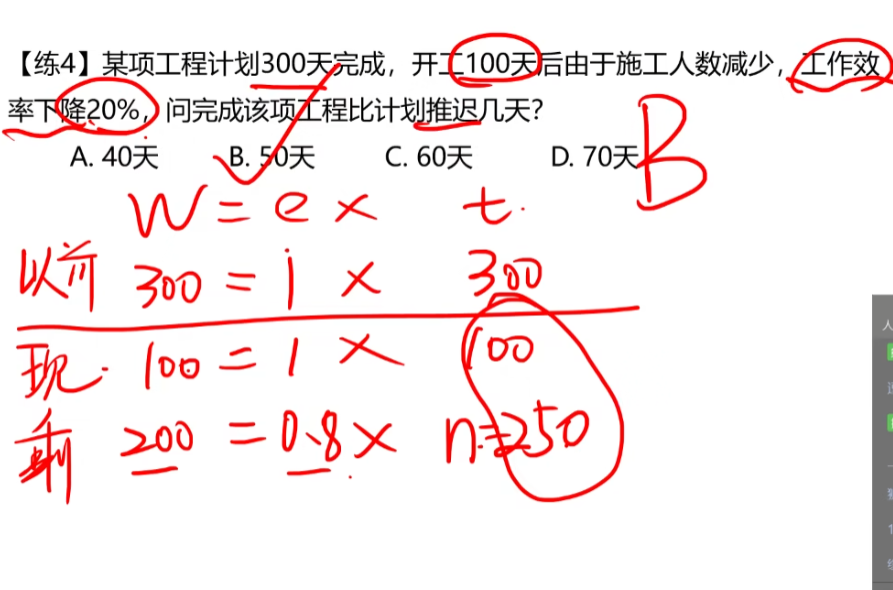 【练4】某项工程计划300天完成，开工100天后由于施工人数减少，工作效
率下降20%，问完成该项工程比计划推迟几天？
A. 40天 B. 50天 C. 60天 D. 70天
B
W = e × t.
以前 300 = 1 × 300
现. 100 = 1 × 100
剩 200 = 0.8 × n=250